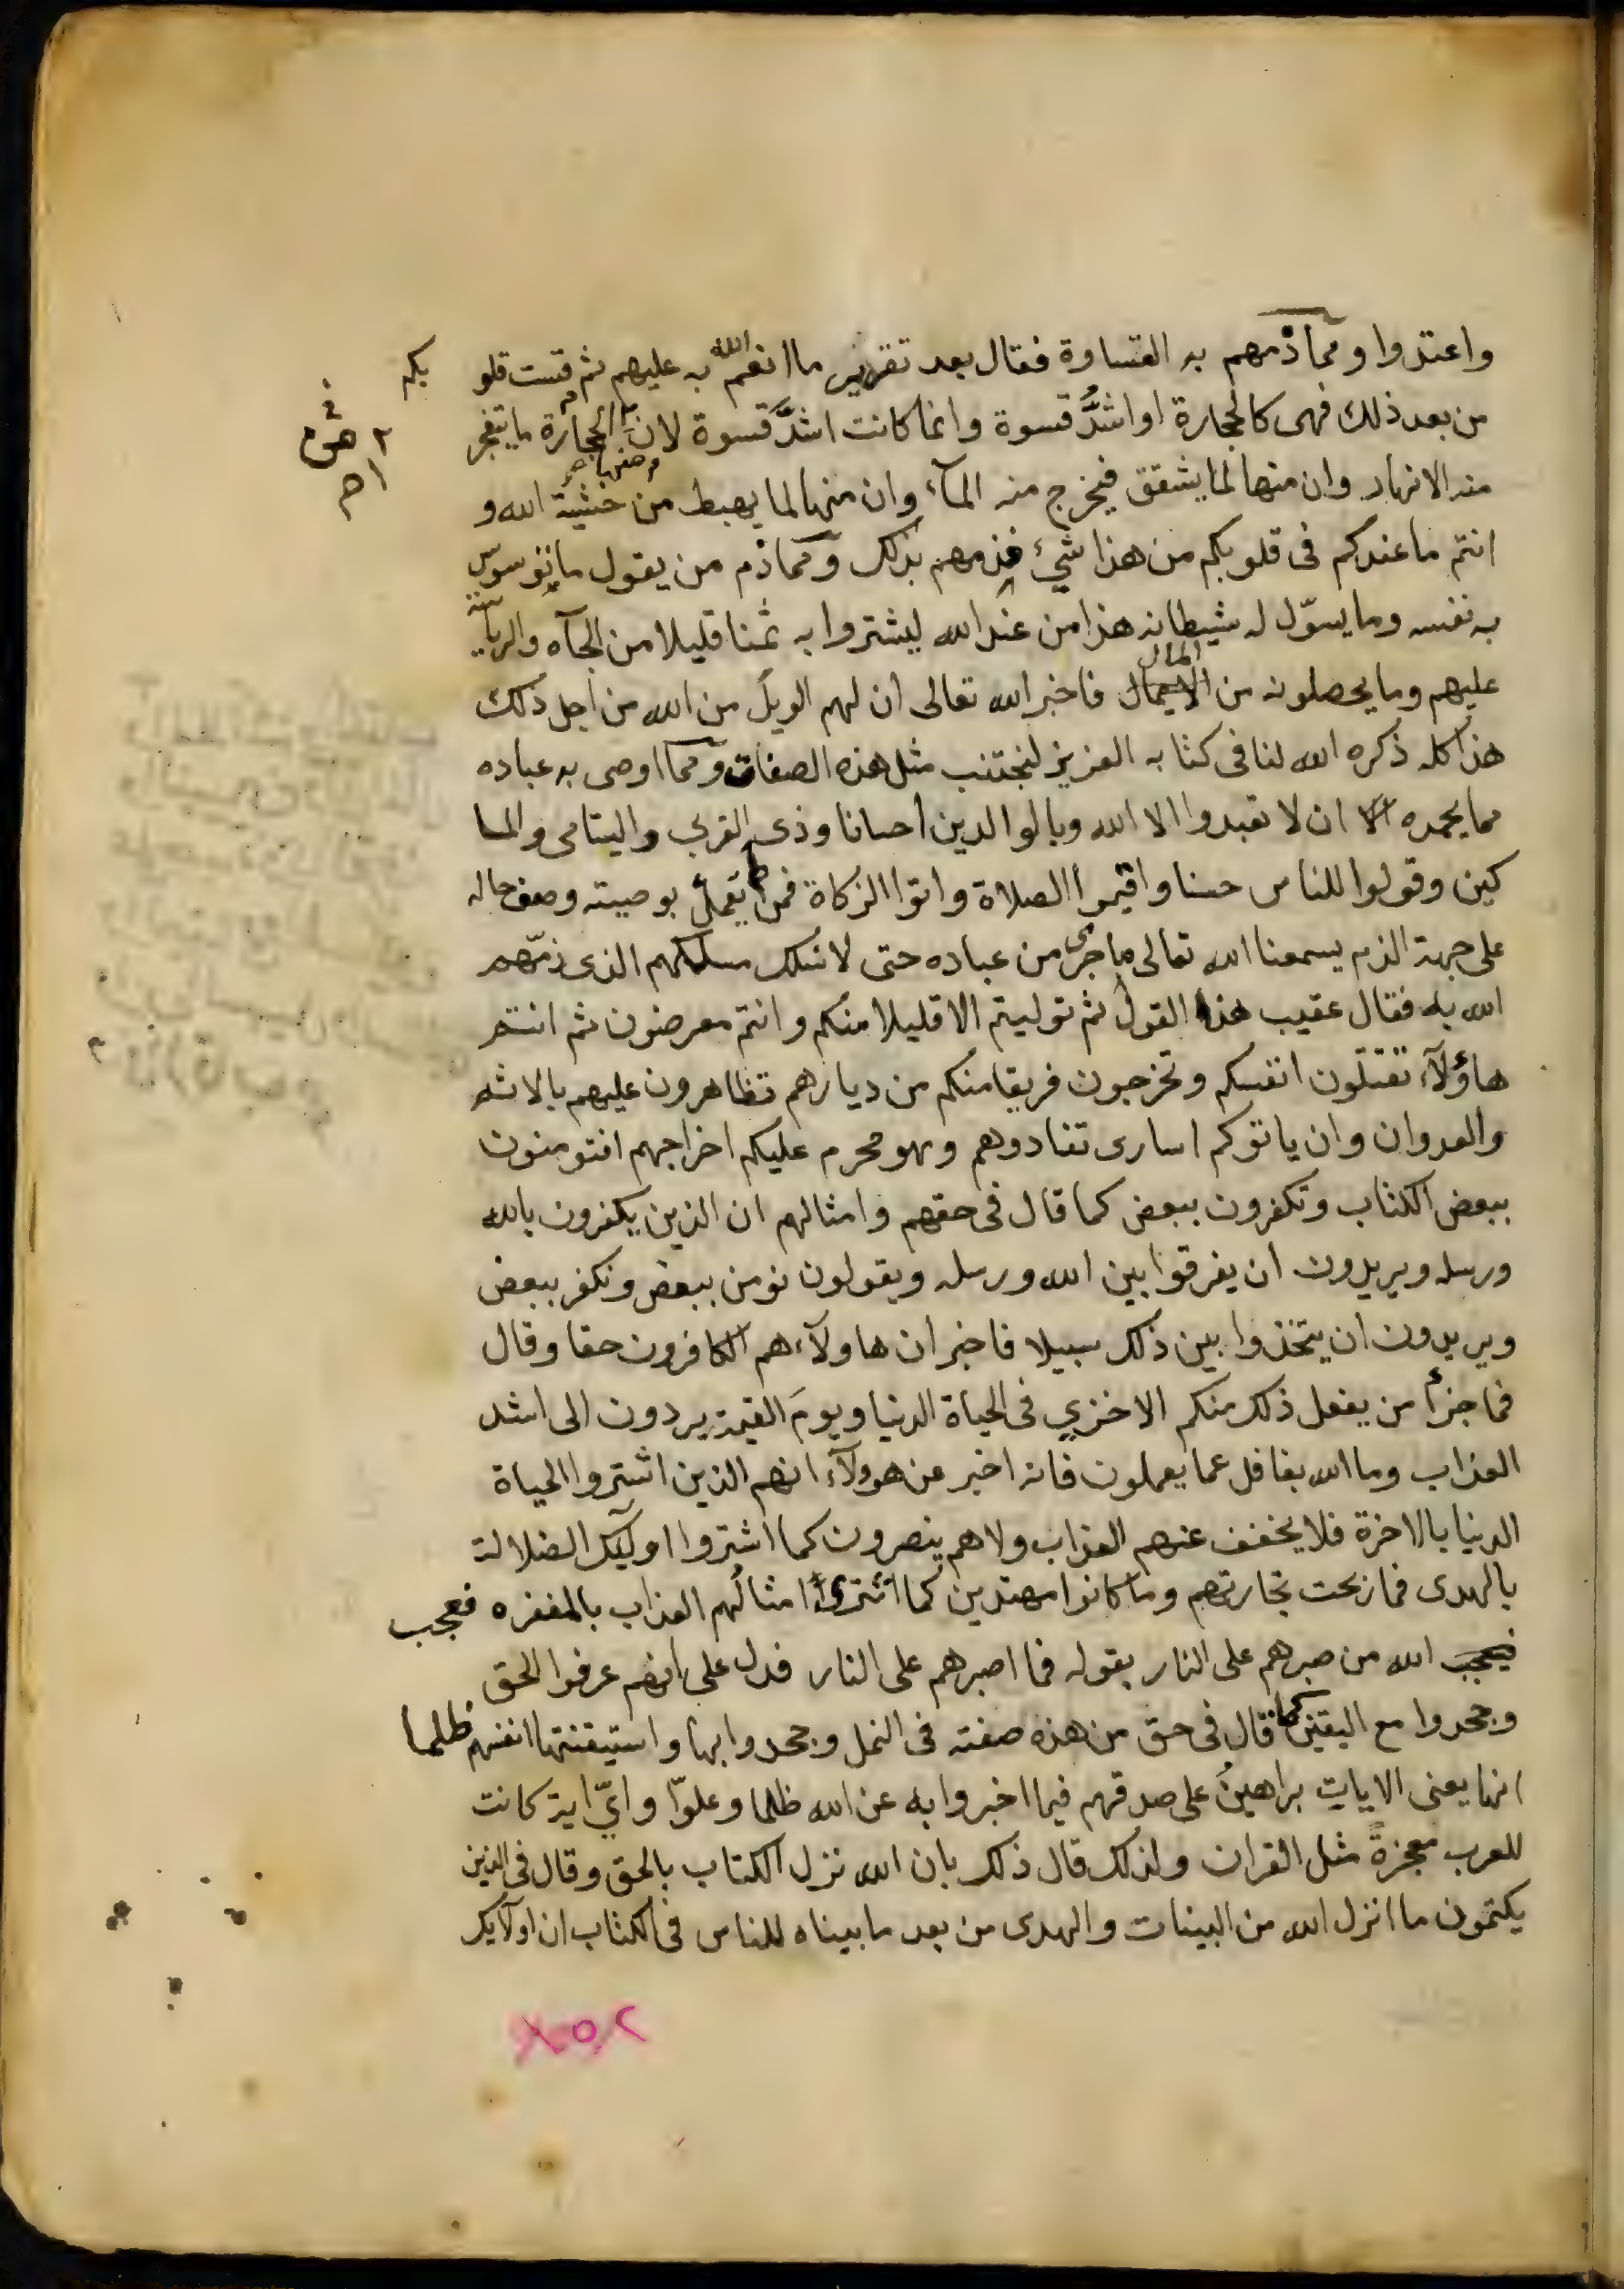 واعتدوا ومما ذمهم به القساوة فقال بعد تقرير ما انعم الله به عليهم ثم قست قلو بكم
من بعد ذلك فهى كالحجارة او اشدُّ قسوة وانما كانت اشدَّ قسوة لان من الحجارة ما يتفجر
منه الانهار وان منها لما يشقق فيخرج منه المآء وان منها لما يهبط من خشية الله و
انتم ما عندكم فى قلوبكم من هذا شيء فذمهم بذلك ومما ذم من يقول ما توسوس
به نفسه وما يسوّل له شيطانه هذا من عند الله ليشتروا به ثمنا قليلا من الجآه والرياسة
عليهم وما يحصلونه من المال فاخبر الله تعالى ان لهم الويل من الله من اجل ذلك
هذا كله ذكره الله لنا فى كتابه العزيز لنجتنب مثل هذه الصفات ومما اوصى به عباده
مما يحمده ان لا تعبدوا الا الله وبالوالدين احسانا وذى القربى واليتامى والمسا
كين وقولوا للناس حسنا واقيموا الصلاة واتوا الزكاة فمن لم يعمل بوصيته وصف حاله
على جهة الذم يسمعنا الله تعالى ما جرى من عباده حتى لا نسلك مسلكهم الذى ذمّهم
الله به فقال عقيب هذا القول ثم توليتم الا قليلا منكم وانتم معرضون ثم انتم
هاؤلآء تقتلون انفسكم وتخرجون فريقا منكم من ديارهم تظاهرون عليهم بالاثم
والعدوان وان ياتوكم اسارى تفادوهم وهو محرم عليكم اخراجهم افتومنون
ببعض الكتاب وتكفرون ببعض كما قال فى حقهم وامثالهم ان الذين يكفرون بالله
ورسله ويريدون ان يفرقوا بين الله ورسله ويقولون نومن ببعض ونكفر ببعض
ويريدون ان يتخذوا بين ذلك سبيلا فاخبر ان هاولآء هم الكافرون حقا وقال
فما جزأ من يفعل ذلك منكم الا خزي فى الحياة الدنيا ويومَ القيمة يردون الى اشد
العذاب وما الله بغافل عما يعملون فانه اخبر عن هوولآء انهم الذين اشتروا الحياة
الدنيا بالاخرة فلا يخفف عنهم العذاب ولا هم ينصرون كما اشتروا اوليك الضلالة
بالهدى فما ربحت تجارتهم وما كانوا مهتدين كما اشترى امثالُهم العذاب بالمغفره فعجب
فيعجب الله من صبرهم على النار بقوله فما اصبرهم على النار فدل على انهم عرفوا الحق
وجحدوا مع اليقين كما قال فى حق من هذه صفته فى النمل وجحدوا بها واستيقنتها انفسهم ظلما
انها يعنى الايات براهينُ على صدقهم فيما اخبروا به عن الله ظلما وعلوّا وايّ اية كانت
للعرب معجزةً مثل القران ولذلك قال ذلك بان الله نزل الكتاب بالحق وقال فى الذين
يكتمون ما انزل الله من البينات والهدى من بعد ما بيناه للناس فى الكتاب ان اولآيك